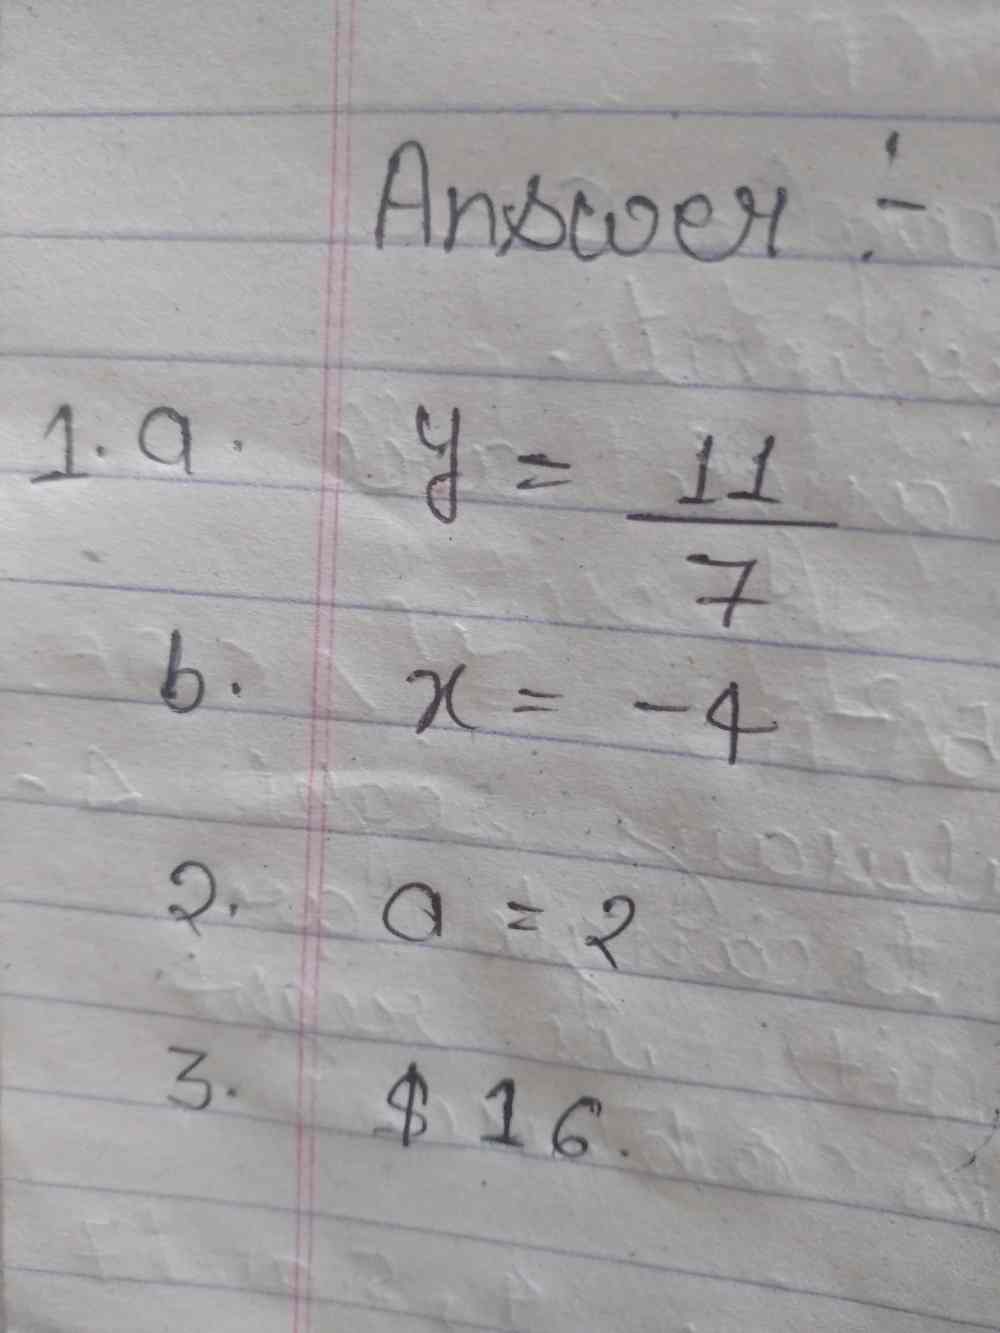 Answer :-
1. a. y = 11/7
b. x = -4
2. a = 2
3. $ 16.